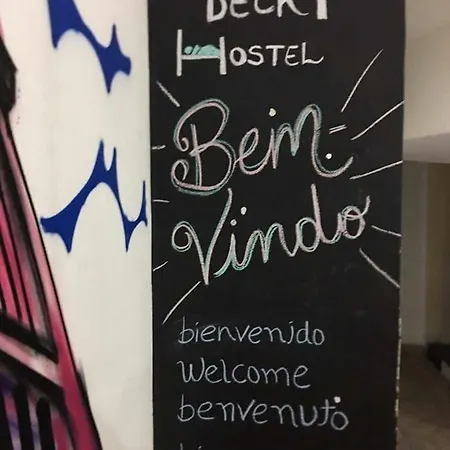 DECK
HOSTEL
Bem.
Vindo
bienvenido
welcome
benvenuto